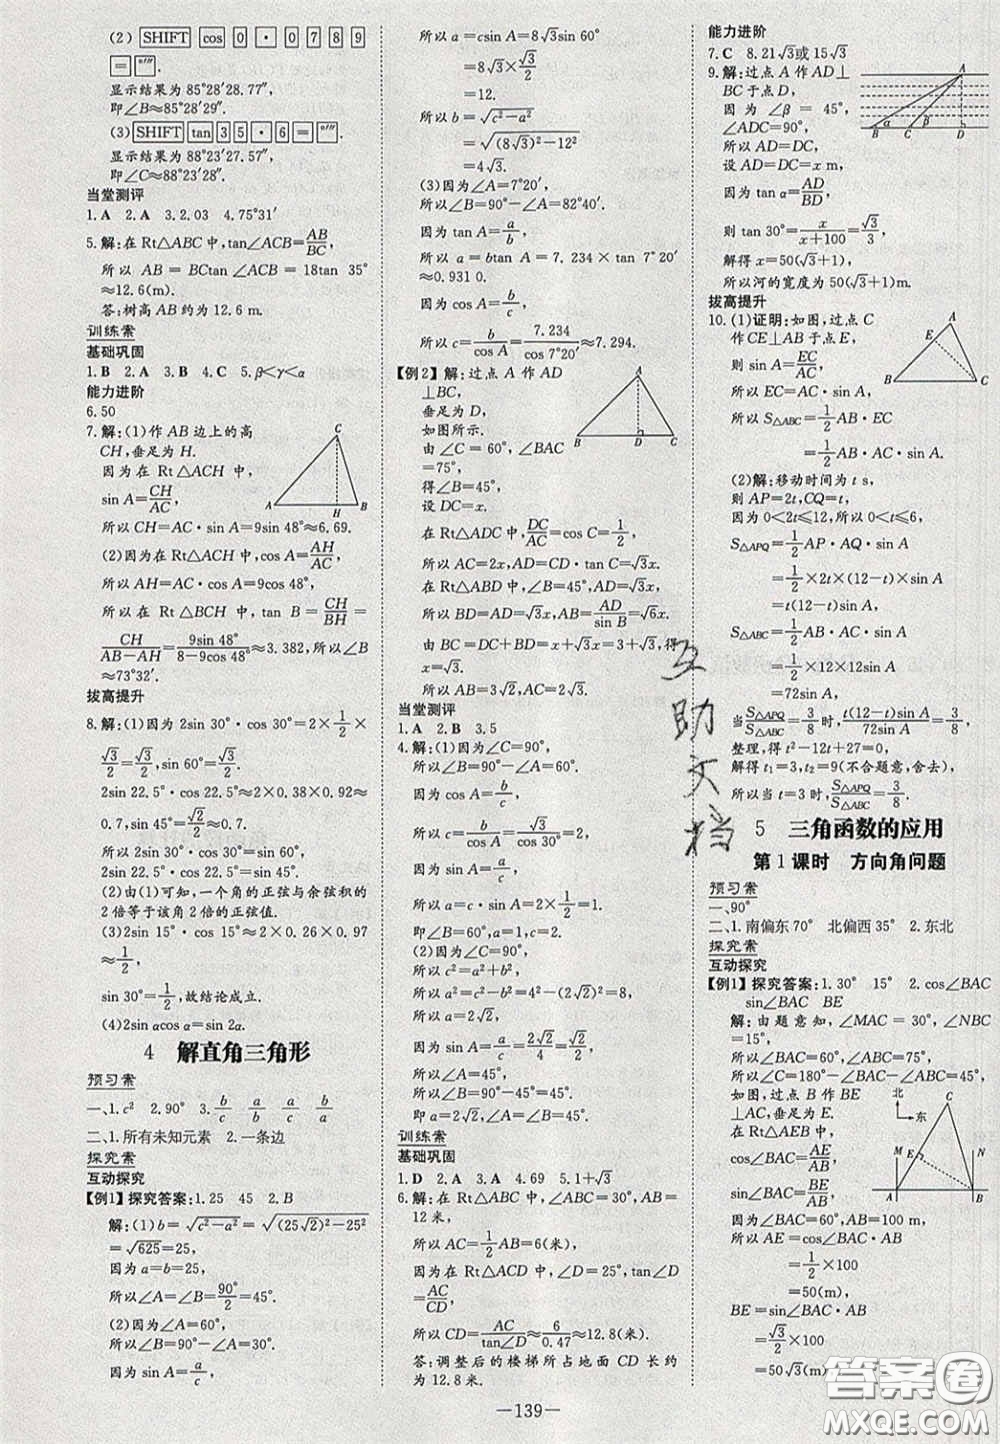 (2) SHIFT cos 0 · 0 7 8 9
= °′″
显示结果为 85°28′28.77″,
即∠B≈85°28′29″.
(3) SHIFT tan 3 5 · 6 = °′″
显示结果为 88°23′27.57″,
即∠C≈88°23′28″.
当堂测评
1.A 2.A 3.2.03 4.75°31′
5.解:在 Rt△ABC 中,tan∠ACB=AB/BC,
所以 AB = BCtan ∠ACB = 18tan 35°
≈12.6(m).
答:树高 AB 约为 12.6 m.
训练案
基础巩固
1.B 2.A 3.B 4.C 5.β<γ<α
能力进阶
6.50
7.解:(1)作 AB 边上的高
CH,垂足为 H.
因为在 Rt△ACH 中,
sin A=CH/AC,
C
A H B
所以 CH=AC·sin A=9sin 48°≈6.69.
(2)因为在 Rt△ACH 中,cos A=AH/AC,
所以 AH=AC·cos A=9cos 48°,
所以 在 Rt △BCH 中, tan B = CH/BH =
CH/(AB-AH)=9sin 48°/(8-9cos 48°)≈3.382,所以∠B
≈73°32′.
拔高提升
8.解:(1)因为 2sin 30°·cos 30°=2×1/2×
√3/2=√3/2,sin 60°=√3/2.
2sin 22.5°·cos 22.5°≈2×0.38×0.92≈
0.7,sin 45°=√2/2≈0.7,
所以 2sin 30°·cos 30°=sin 60°,
2sin 22.5°·cos 22.5°=sin 45°.
(2)由(1)可知,一个角的正弦与余弦积的
2倍等于该角2倍的正弦值.
(3)2sin 15°·cos 15°≈2×0.26×0.97
≈1/2,
sin 30°=1/2,故结论成立.
(4)2sin αcos α=sin 2α.
4 解直角三角形
预习案
一、1.c² 2.90° 3.b/c a/c b/a a/b
二、1.所有未知元素 2.一条边
探究案
互动探究
【例1】探究答案:1.25 45 2.B
解:(1)b=√(c²-a²)=√((25√2)²-25²)
=√625=25,
因为 a=b=25,
所以∠A=∠B=90°/2=45°.
(2)因为∠A=60°,
所以∠B=90°-∠A=30°.
因为 sin A=a/c,
所以 a=csin A=8√3sin 60°
=8√3×√3/2
=12.
所以 b=√(c²-a²)
=√((8√3)²-12²)
=4√3.
(3)因为∠A=7°20′,
所以∠B=90°-∠A=82°40′.
因为 tan A=a/b,
所以 a=btan A=7.234×tan 7°20′
≈0.931 0.
因为 cos A=b/c,
所以 c=b/cos A=7.234/cos 7°20′≈7.294.
【例2】解:过点 A 作 AD
⊥BC,
垂足为 D,
如图所示.
由∠C=60°,∠BAC
=75°,
得∠B=45°,
设 DC=x.
A
B D C
在 Rt△ADC 中,DC/AC=cos C=1/2,
所以 AC=2x,AD=CD·tan C=√3x.
在 Rt△ABD 中,∠B=45°,AD=√3x,
所以 BD=AD=√3x,AB=AD/sin B=√6x.
由 BC=DC+BD=x+√3x=3+√3,得
x=√3.
所以 AB=3√2,AC=2√3.
当堂测评
1.A 2.B 3.5
4.解:(1)因为∠C=90°,
所以∠B=90°-∠A=60°.
因为 cos A=b/c,
所以 c=b/cos A=√3/cos 30°=2.
因为 sin A=a/c,
所以 a=c·sin A=2×1/2=1.
即∠B=60°,a=1,c=2.
(2)因为∠C=90°,
所以 c²=a²+b².
所以 a²=c²-b²=4²-(2√2)²=8,
所以 a=2√2.
因为 sin A=a/c=2√2/4=√2/2,
所以∠A=45°,
所以∠B=90°-45°=45°.
即 a=2√2,∠A=45°,∠B=45°.
训练案
基础巩固
1.D 2.A 3.A 4.69 5.1+√3
6.解:在 Rt△ABC 中,∠ABC=30°,AB=
12米,
所以 AC=1/2AB=6(米),
因为在 Rt△ACD 中,∠D=25°,tan∠D
=AC/CD,
所以 CD=AC/tan∠D≈6/0.47≈12.8(米).
答:调整后的楼梯所占地面 CD 长约
为 12.8 米.
能力进阶
7.C 8.21√3或15√3
9.解:过点 A 作 AD⊥
BC于点 D,
因为 ∠β = 45°,
∠ADC=90°,
所以 AD=DC,
设 AD=DC=x m,
A
B α C β D
因为 tan α=AD/BD,
则 tan 30°=x/(x+100)=√3/3,
解得 x=50(√3+1),
所以河的宽度为 50(√3+1)m.
拔高提升
10.(1)证明:如图,过点 C
作 CE⊥AB 于点 E,
则 sin A=EC/AC,
A
E
B C
所以 EC=AC·sin A,
所以 S△ABC=1/2AB·EC
=1/2AB·AC·sin A.
(2)解:移动时间为 t s,
则 AP=2t,CQ=t,
因为 0<2t≤12,所以 0<t≤6,
S△APQ=1/2AP·AQ·sin A
=1/2×2t×(12-t)×sin A
=t(12-t)sin A,
S△ABC=1/2AB·AC·sin A
=1/2×12×12×sin A
=72sin A,
当 S△APQ/S△ABC=3/8时,t(12-t)sin A/72sin A=3/8,
整理,得 t²-12t+27=0,
解得 t₁=3,t₂=9(不合题意,舍去),
所以当 t=3 时,S△APQ/S△ABC=3/8.
5 三角函数的应用
第1课时 方向角问题
预习案
一、90°
二、1.南偏东70° 北偏西35° 2.东北
探究案
互动探究
【例1】探究答案:1.30° 15° 2.cos∠BAC
sin∠BAC BE
解:由题意知,∠MAC=30°,∠NBC
=15°,
所以∠BAC=60°,∠ABC=75°,
所以∠C=180°-∠BAC-∠ABC=45°.
如图,过点 B 作 BE
⊥AC,垂足为 E.
在 Rt△AEB 中,
cos∠BAC=AE/AB,
sin∠BAC=BE/AB,
北
东
C
M E N
A B
因为∠BAC=60°,AB=100 m,
所以 AE=cos∠BAC·AB
=1/2×100
=50(m),
BE =sin∠BAC·AB
=√3/2×100
=50√3(m).
—139—
互助文档
答案圈
MXQE.COM